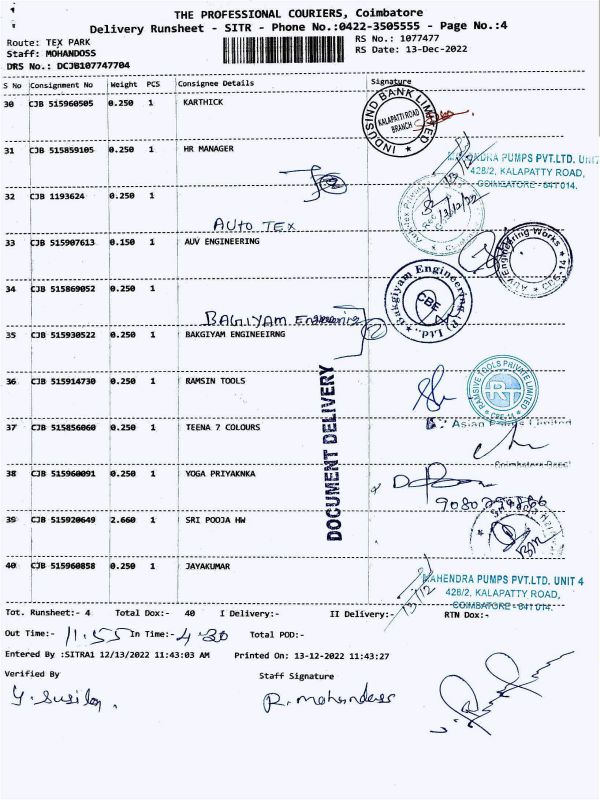 THE PROFESSIONAL COURIERS, Coimbatore
Delivery Runsheet - SITR - Phone No.:0422-3505555 - Page No.:4
Route: TEX PARK
Staff: MOHANDOSS
DRS No.: DCJB107747704
RS No.: 1077477
RS Date: 13-Dec-2022
S No Consignment No Weight PCS Consignee Details Signature
30 CJB 515960505 0.250 1 KARTHICK
INDUSIND BANK LIMITED
KALAPATTI ROAD
BRANCH
31 CJB 515859105 0.250 1 HR MANAGER
PUMPS PVT.LTD. UNIT
428/2, KALAPATTY ROAD,
COIMBATORE - 641 014.
13/12
32 CJB 1193624 0.250 1
AUTO TEX
13/12/22
33 CJB 515907613 0.150 1 AUV ENGINEERING
AUV Engineering Works
CBE-14
34 CJB 515869052 0.250 1
BAGIYAM Engineering
Bakgiyam Engineering (P) Ltd.
CBE
35 CJB 515930522 0.250 1 BAKGIYAM ENGINEEIRNG
36 CJB 515914730 0.250 1 RAMSIN TOOLS
RAMSIVE TOOLS PRIVATE LIMITED
RT
CBE-14
37 CJB 515856060 0.250 1 TEENA 7 COLOURS
Asian Limited
38 CJB 515960091 0.250 1 YOGA PRIYAKNKA
39 CJB 515920649 2.660 1 SRI POOJA HW
40 CJB 515960858 0.250 1 JAYAKUMAR
MAHENDRA PUMPS PVT.LTD. UNIT 4
428/2, KALAPATTY ROAD,
COIMBATORE - 641 014.
13/12
DOCUMENT DELIVERY
Tot. Runsheet:- 4 Total Dox:- 40 I Delivery:- II Delivery:- RTN Dox:-
Out Time:- 11.55 In Time:- 4.30 Total POD:-
Entered By :SITRA1 12/13/2022 11:43:03 AM Printed On: 13-12-2022 11:43:27
Verified By Staff Signature
Y. Susila. R. mohandoss